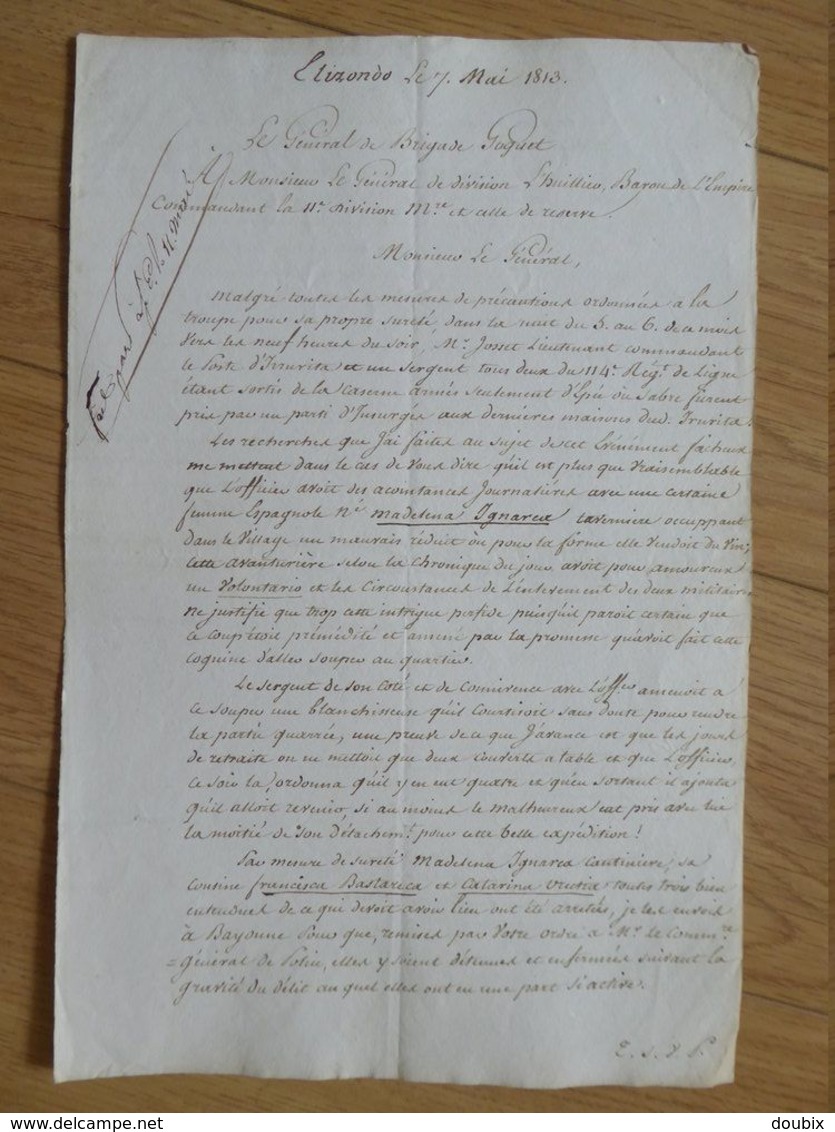 Elizondo Le 7. Mai 1813.
Le Général de Brigade Guquet
A Monsieur Le Général de division L'huillier, Baron de L'Empire
Commandant la 11e. division Mre. et celle de reserve.
fait part à
le 11. mai
Monsieur Le Général,
Malgré toutes les mesures de précautions ordonnées a la
troupe pour sa propre sureté, dans la nuit du 5. au 6. de ce mois
Vers les neuf heures du soir, Mr. Josset Lieutenant commandant
le Poste d'Irrurita et un sergent tous deux du 114e. Régt. de Ligne
étant sortis de la caserne armés seulement d'Epée ou Sabre furent
pris par un parti d'Insurgés aux dernières maisons dud. Irurita.
Les recherches que J'ai faites au sujet de cet Evénément facheux
me mettent dans le cas de Vous dire qu'il est plus que Vraisemblable
que L'officier avoit des acointances Journalières avec une certaine
femme Espagnole Née Madelena Ignarea taverniere occupant
dans le Village un mauvais réduit où pour la forme elle vendoit du Vin;
cette avanturière selon la chronique du jour avoit pour amoureux
un Volontario et les Circonstances de L'enlevement des deux militaires
ne justifie que trop cette intrigue perfide puisqu'il paroit certain que
ce coup étoit prémédité et amené par la promesse qu'avoit fait cette
coquine d'aller souper au quartier.
Le sergent de son coté et de connivence avec L'offer. amenoit à
ce souper une blanchisseuse qu'il courtisoit sans doute pour rendre
la partie quarrée, une preuve de ce que J'avance est que les jours
de retraite on ne mettoit que deux couverts a table et que L'officier,
ce soir la, ordonna qu'il y en eut quatre et qu'en sortant il ajouta
qu'il alloit revenir, si au moins le malheureux eut pris avec lui
la moitié de son Détachemt. pour cette belle expédition!
Par mesure de sureté Madelena Ignarea Cantinière, sa
cousine francisca Bastareca et Catarina Vrectia toutes trois bien
entendues de ce qui devoit avoir lieu ont été arretées, je les envois
à Bayonne pour que, remises par Votre ordre à Mr. le Commre.
= général de Police, elles y soient détenues et enfermées suivant la
gravité du délit au quel elles ont eu une part si active.
T. S. V. P.
www.delcampe.net
doubix